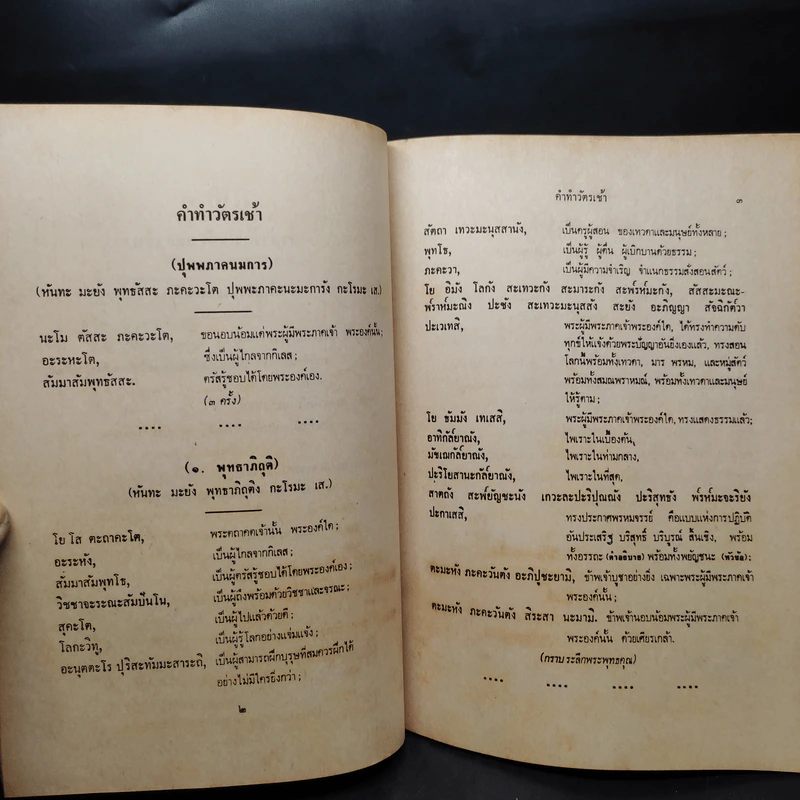 คำทำวัตรเช้า
(ปุพพภาคนมการ)
(หันทะ มะยัง พุทธัสสะ ภะคะวะโต ปุพพะภาคะนะมะการัง กะโรมะ เส.)
นะโม ตัสสะ ภะคะวะโต, ขอนอบน้อมแด่พระผู้มีพระภาคเจ้า พระองค์นั้น;
อะระหะโต, ซึ่งเป็นผู้ไกลจากกิเลส;
สัมมาสัมพุทธัสสะ. ตรัสรู้ชอบได้โดยพระองค์เอง.
(๓ ครั้ง)
.... .... ....
(๑. พุทธาภิถุติ)
(หันทะ มะยัง พุทธาภิถุติง กะโรมะ เส.)
โย โส ตะถาคะโต, พระตถาคตเจ้านั้น พระองค์ใด;
อะระหัง, เป็นผู้ไกลจากกิเลส;
สัมมาสัมพุทโธ, เป็นผู้ตรัสรู้ชอบได้โดยพระองค์เอง;
วิชชาจะระณะสัมปันโน, เป็นผู้ถึงพร้อมด้วยวิชชาและจรณะ;
สุคะโต, เป็นผู้ไปแล้วด้วยดี;
โลกะวิทู, เป็นผู้รู้โลกอย่างแจ่มแจ้ง;
อะนุตตะโร ปุริสะทัมมะสาระถิ, เป็นผู้สามารถฝึกบุรุษที่สมควรฝึกได้
อย่างไม่มีใครยิ่งกว่า;
๒
คำทำวัตรเช้า ๓
สัตถา เทวะมะนุสสานัง, เป็นครูผู้สอน ของเทวดาและมนุษย์ทั้งหลาย;
พุทโธ, เป็นผู้รู้ ผู้ตื่น ผู้เบิกบานด้วยธรรม;
ภะคะวา, เป็นผู้มีความจำเริญ จำแนกธรรมสั่งสอนสัตว์;
โย อิมัง โลกัง สะเทวะกัง สะมาระกัง สะพ๎รัห๎มะกัง, สัสสะมะณะ-
พ๎ราห๎มะณิง ปะชัง สะเทวะมะนุสสัง สะยัง อะภิญญา สัจฉิกัต๎วา
ปะเวเทสิ, พระผู้มีพระภาคเจ้าพระองค์ใด, ได้ทรงทำความดับ
ทุกข์ให้แจ้งด้วยพระปัญญาอันยิ่งเองแล้ว, ทรงสอน
โลกนี้พร้อมทั้งเทวดา, มาร พรหม, และหมู่สัตว์
พร้อมทั้งสมณพราหมณ์, พร้อมทั้งเทวดาและมนุษย์
ให้รู้ตาม;
โย ธัมมัง เทเสสิ, พระผู้มีพระภาคเจ้าพระองค์ใด, ทรงแสดงธรรมแล้ว;
อาทิกัล๎ยาณัง, ไพเราะในเบื้องต้น,
มัชเฌกัล๎ยาณัง, ไพเราะในท่ามกลาง,
ปะริโยสานะกัล๎ยาณัง, ไพเราะในที่สุด,
สาตถัง สะพ๎ยัญชะนัง เกวะละปะริปุณณัง ปะริสุทธัง พ๎รัห๎มะจะริยัง
ปะกาเสสิ, ทรงประกาศพรหมจรรย์ คือแบบแห่งการปฏิบัติ
อันประเสริฐ บริสุทธิ์ บริบูรณ์ สิ้นเชิง, พร้อม
ทั้งอรรถะ (คำอธิบาย) พร้อมทั้งพยัญชนะ (หัวข้อ);
ตะมะหัง ภะคะวันตัง อะภิปูชะยามิ, ข้าพเจ้าบูชาอย่างยิ่ง เฉพาะพระผู้มีพระภาคเจ้า
พระองค์นั้น;
ตะมะหัง ภะคะวันตัง สิระสา นะมามิ. ข้าพเจ้านอบน้อมพระผู้มีพระภาคเจ้า
พระองค์นั้น ด้วยเศียรเกล้า.
(กราบระลึกพระพุทธคุณ)
.... .... .... ....